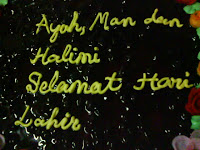 Ayah, Man dan
Halimi
Selamat Hari
Lahir